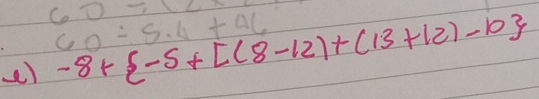 60 ÷ 5.4 + 46
e) -8+{-5+[(8-12)+(13+12)-10}